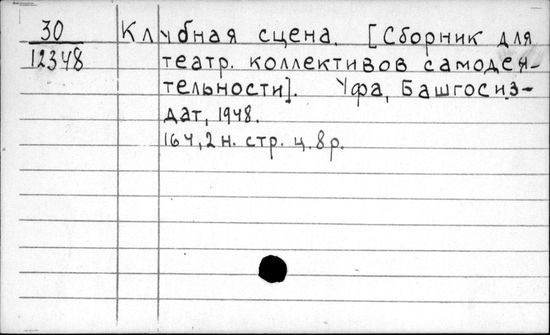 30
12348
Клубная сцена. [Сборник для
театр. коллективов самодея-
тельности]. Уфа, Башгосиз-
дат, 1948.
164, 2 н. стр. ц. 8 р.